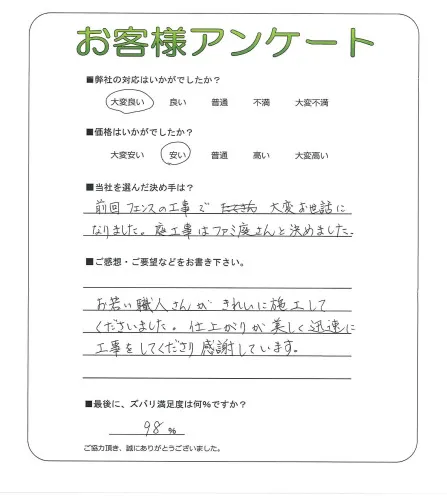 お客様アンケート
■弊社の対応はいかがでしたか?
大変良い 良い 普通 不満 大変不満
■価格はいかがでしたか?
大変安い 安い 普通 高い 大変高い
■当社を選んだ決め手は?
前回フェンスの工事で 大変お世話に
なりました。庭工事はファミ庭さんと決めました。
■ご感想・ご要望などをお書き下さい。
お若い職人さんがきれいに施工して
くださいました。仕上がりが美しく迅速に
工事をしてくださり感謝しています。
■最後に、ズバリ満足度は何%ですか?
98 %
ご協力頂き、誠にありがとうございました。